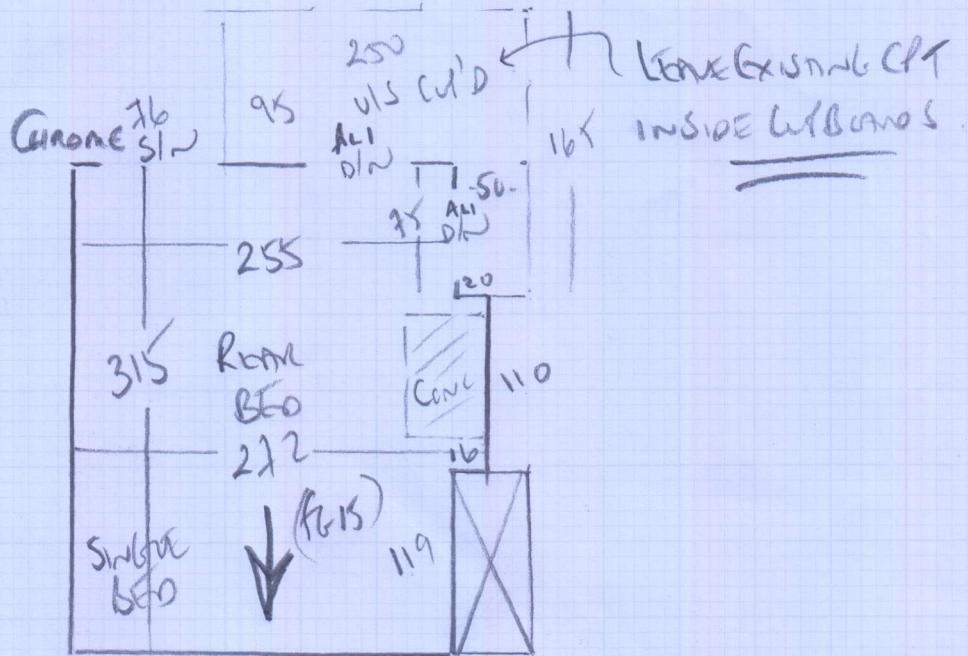 250
U/S CUP'D
95
LEAVE EXISTING CPT
INSIDE CUPBOARDS
CHROME 76
S/N
ALI
D/N
165
50
75
ALI
D/N
255
20
315
REAR
BED
CONC
110
272
16
SINGLE
BED
119